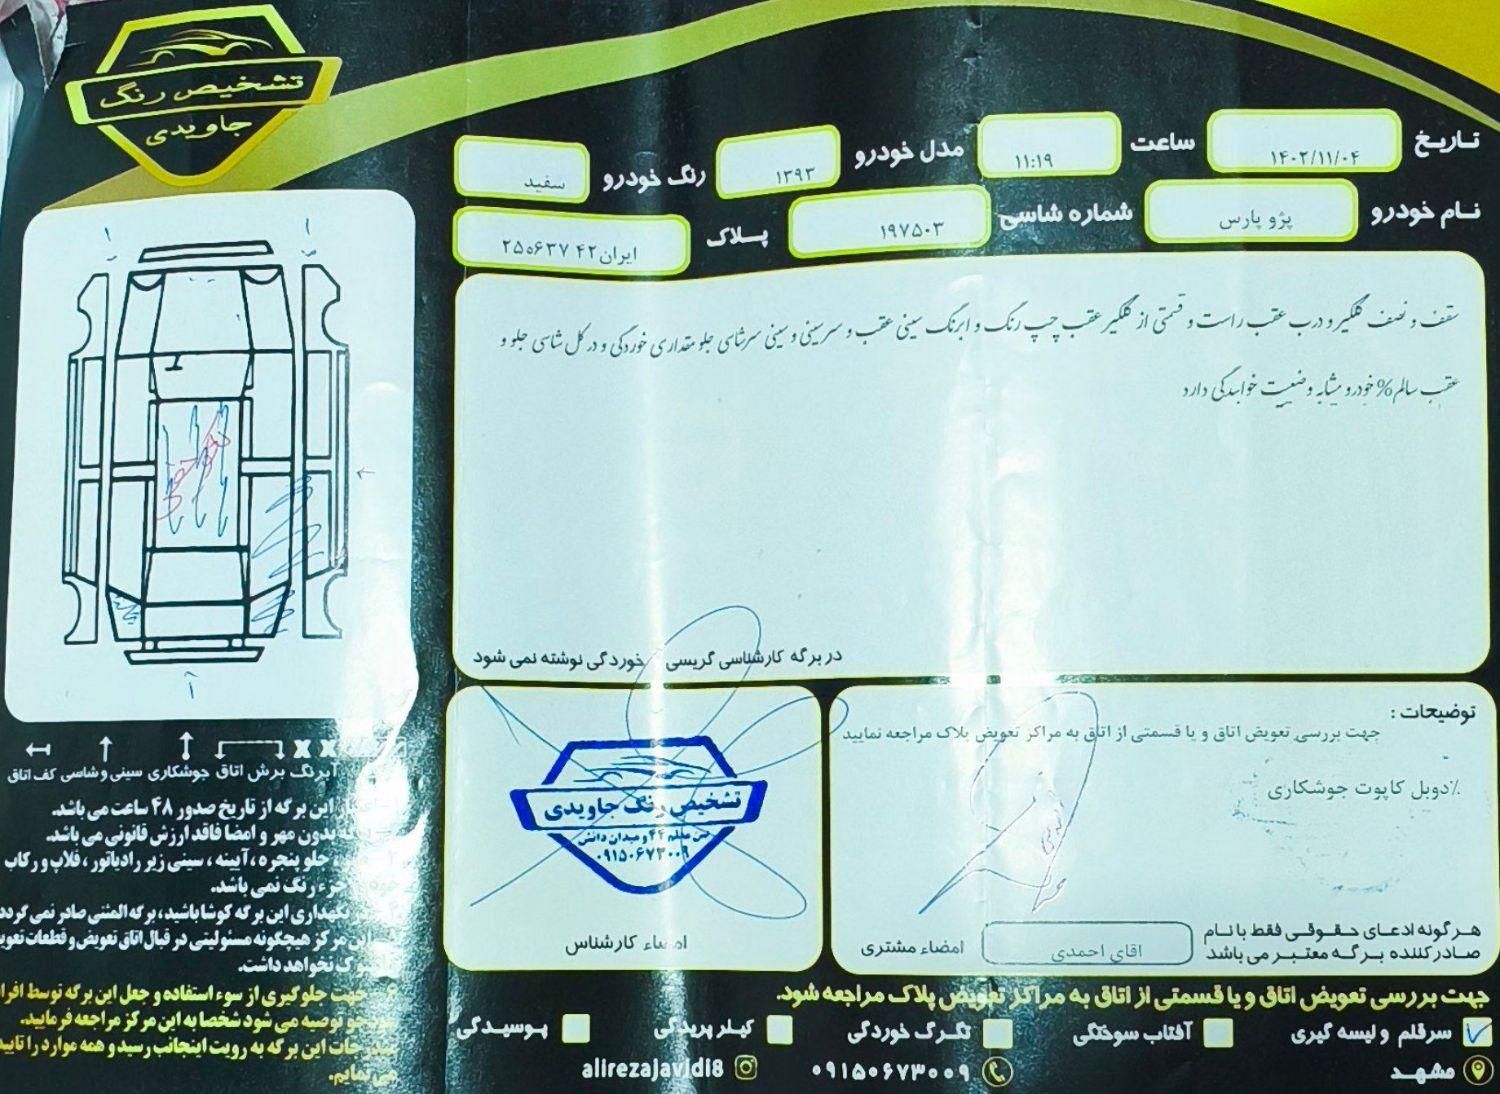 تشخیص رنگ
جاویدی
تاریخ ۱۴۰۲/۱۱/۰۴ ساعت ۱۱:۱۹ مدل خودرو ۱۳۹۳ رنگ خودرو سفید
نام خودرو پژو پارس شماره شاسی ۱۹۷۵۰۳ پلاک ایران۴۲ ۲۵۰۶۳۷
سقف و نصف گلگیر و درب عقب راست و قسمتی از گلگیر عقب چپ رنگ و ابرنگ سینی عقب و سرسینی و سینی سرشاسی جلو مقداری خوردگی و در کل شاسی جلو و
عقب سالم% خودرو مشابه وضعیت خوابیدگی دارد
در برگه کارشناسی گریسی خوردگی نوشته نمی شود
آبرنگ برش اتاق جوشکاری سینی و شاسی کف اتاق
این برگه از تاریخ صدور ۴۸ ساعت می باشد.
بدون مهر و امضا فاقد ارزش قانونی می باشد.
جلو پنجره ، آیینه ، سینی زیر رادیاتور ، قلاپ و رکاب
جزء رنگ نمی باشد.
نگهداری این برگه کوشا باشید، برگه المثنی صادر نمی گردد
این مرکز هیچگونه مسئولیتی در قبال اتاق تعویض و قطعات
نخواهد داشت.
جهت جلوگیری از سوء استفاده و جعل این برگه توسط
توصیه می شود شخصا به این مرکز مراجعه فرمایید.
این برگه به رویت اینجانب رسید و همه موارد را تایید
می نمایم.
توضیحات :
جهت بررسی تعویض اتاق و یا قسمتی از اتاق به مراکز تعویض پلاک مراجعه نمایید
٪دوبل کاپوت جوشکاری
هرگونه ادعای حقوقی فقط با نام
صادر کننده برگه معتبر می باشد
اقای احمدی
امضاء مشتری
تشخیص رنگ جاویدی
۴۴ و میدان دانش
۰۹۱۵۰۶۷۳۰۰۹
امضاء کارشناس
جهت بررسی تعویض اتاق و یا قسمتی از اتاق به مراکز تعویض پلاک مراجعه شود.
سرقلم و لیسه گیری آفتاب سوختگی تگرگ خوردگی کیلر پریدگی پوسیدگی
مشهد ۰۹۱۵۰۶۷۳۰۰۹ alirezajavidi8